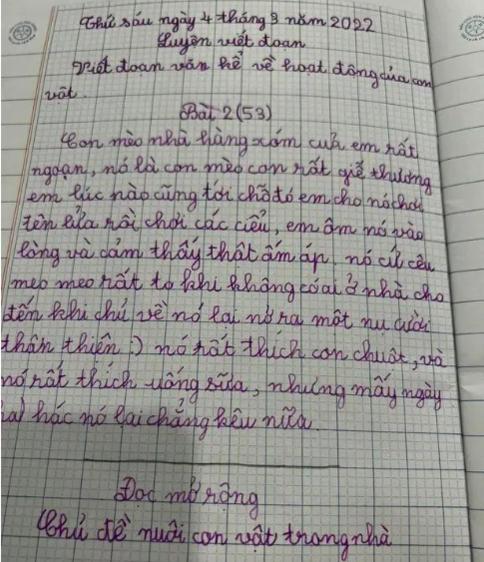 Thứ sáu ngày 4 tháng 3 năm 2022
Luyện viết đoạn
Viết đoạn văn kể về hoạt động của con
vật.
Bài 2 (53)
Con mèo nhà hàng xóm cuả em rất
ngoan, nó là con mèo con rất giễ thương
em lúc nào cũng tới chỗ đó em cho nó chơi
tên lửa rồi chơi các kiểu, em ôm nó vào
lòng và cảm thấy thật ấm áp nó cứ cêu
meo meo rất to khi không có ai ở nhà cho
đến khi chú về nó lại nở ra một nụ cười
thân thiện :) nó rất thích con chuột, và
nó rất thích uống sữa, nhưng mấy ngày
hác nó lại chẳng kêu nữa.
Đọc mở rộng
Chủ đề nuôi con vật trong nhà